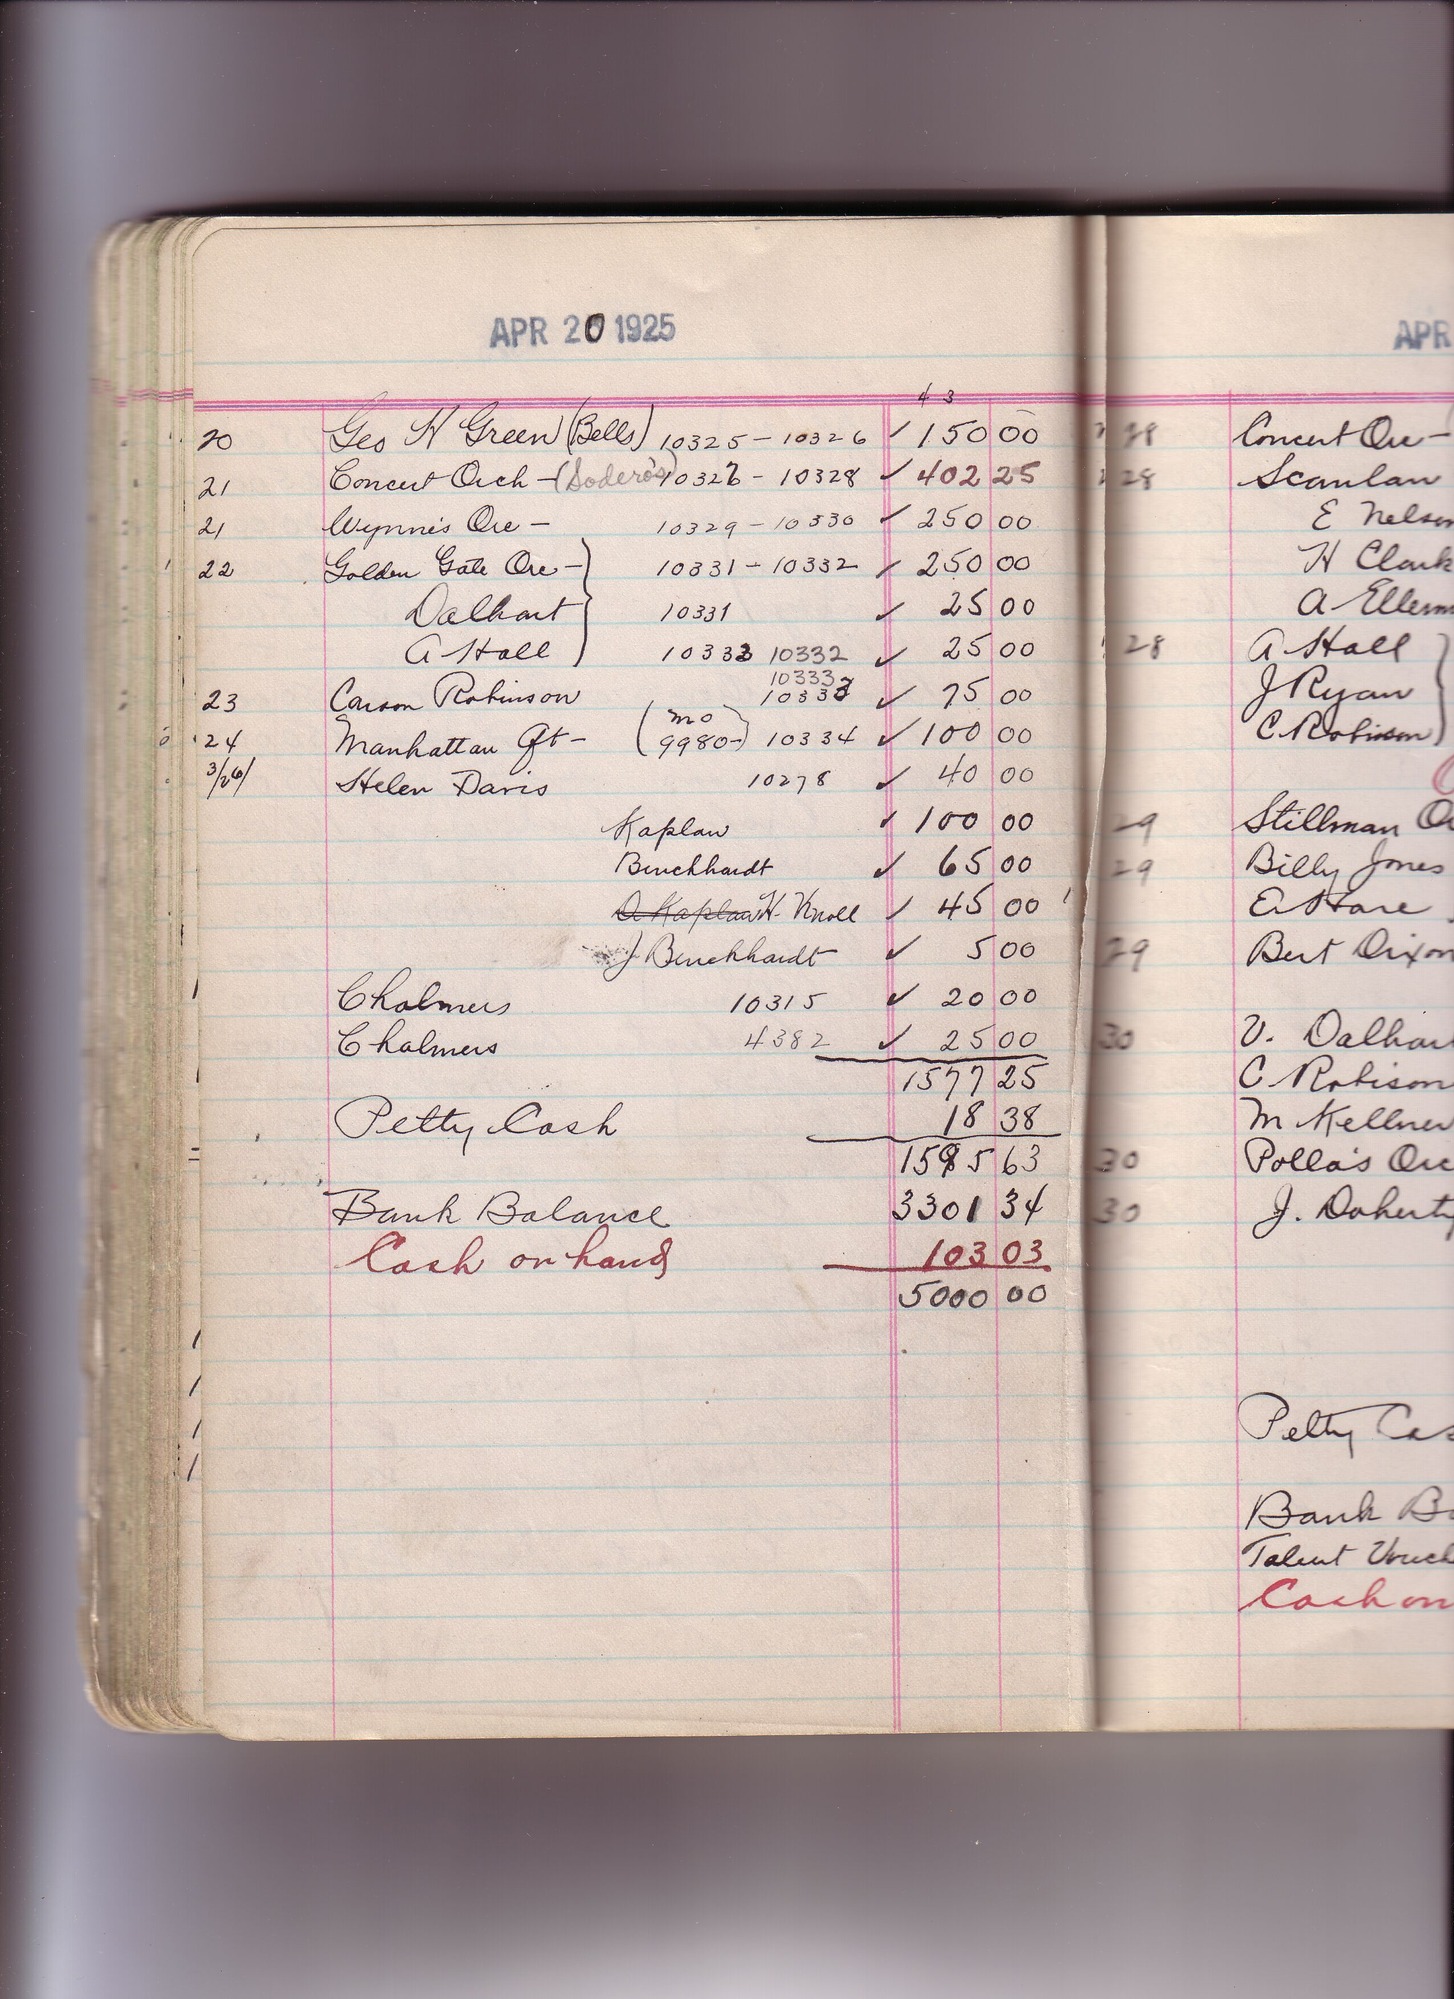 APR 20 1925
4 3
20 Geo H Green (Bells) 10325 - 10326 ✓ 150 00
21 Concert Orch - (Sodero's) 10327 - 10328 ✓ 402 25
21 Wynne's Orc - 10329 - 10330 ✓ 250 00
22 Golden Gate Orc - 10331 - 10332 ✓ 250 00
Dalhart 10331 ✓ 25 00
A Hall 10333 10332 ✓ 25 00
10333
23 Carson Robinson 10333 ✓ 75 00
(mo
24 Manhattan Qt - 9980-) 10334 ✓ 100 00
3/26/ Helen Davis 10278 ✓ 40 00
Kaplan ✓ 100 00
Burckhardt ✓ 65 00
D Kaplan H. Knoll ✓ 45 00
J Burckhardt ✓ 5 00
Chalmers 10315 ✓ 20 00
Chalmers 4382 ✓ 25 00
1577 25
Petty Cash 18 38
1595 63
Bank Balance 3301 34
Cash on hand 103 03
5000 00
APR
28 Concert Orc -
28 Scanlan
E Nelson
H Clark
A Ellerm
28 A Hall
J Ryan
C Robinson
29 Stillman O
29 Billy Jones
E Hare
29 Bert Dixon
30 V. Dalhar
C Robison
M Kellner
30 Polla's Orc
30 J. Doherty
Petty Cas
Bank B
Talent Vouch
Cash on